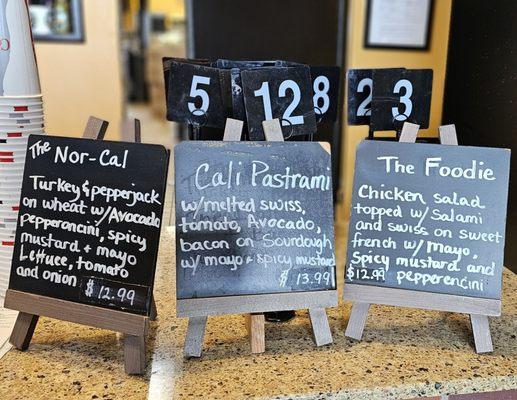 5
12
8
2
3
The Nor-Cal
Turkey & pepperjack
on wheat w/Avocado
pepperoncini, spicy
mustard + mayo
Lettuce, tomato
and onion
$12.99
Cali Pastrami
w/melted swiss,
tomato, Avocado,
bacon on Sourdough
w/ mayo & spicy mustard
$13.99
The Foodie
Chicken salad
topped w/ Salami
and swiss on sweet
french w/ mayo,
Spicy mustard and
$12.99 pepperoncini